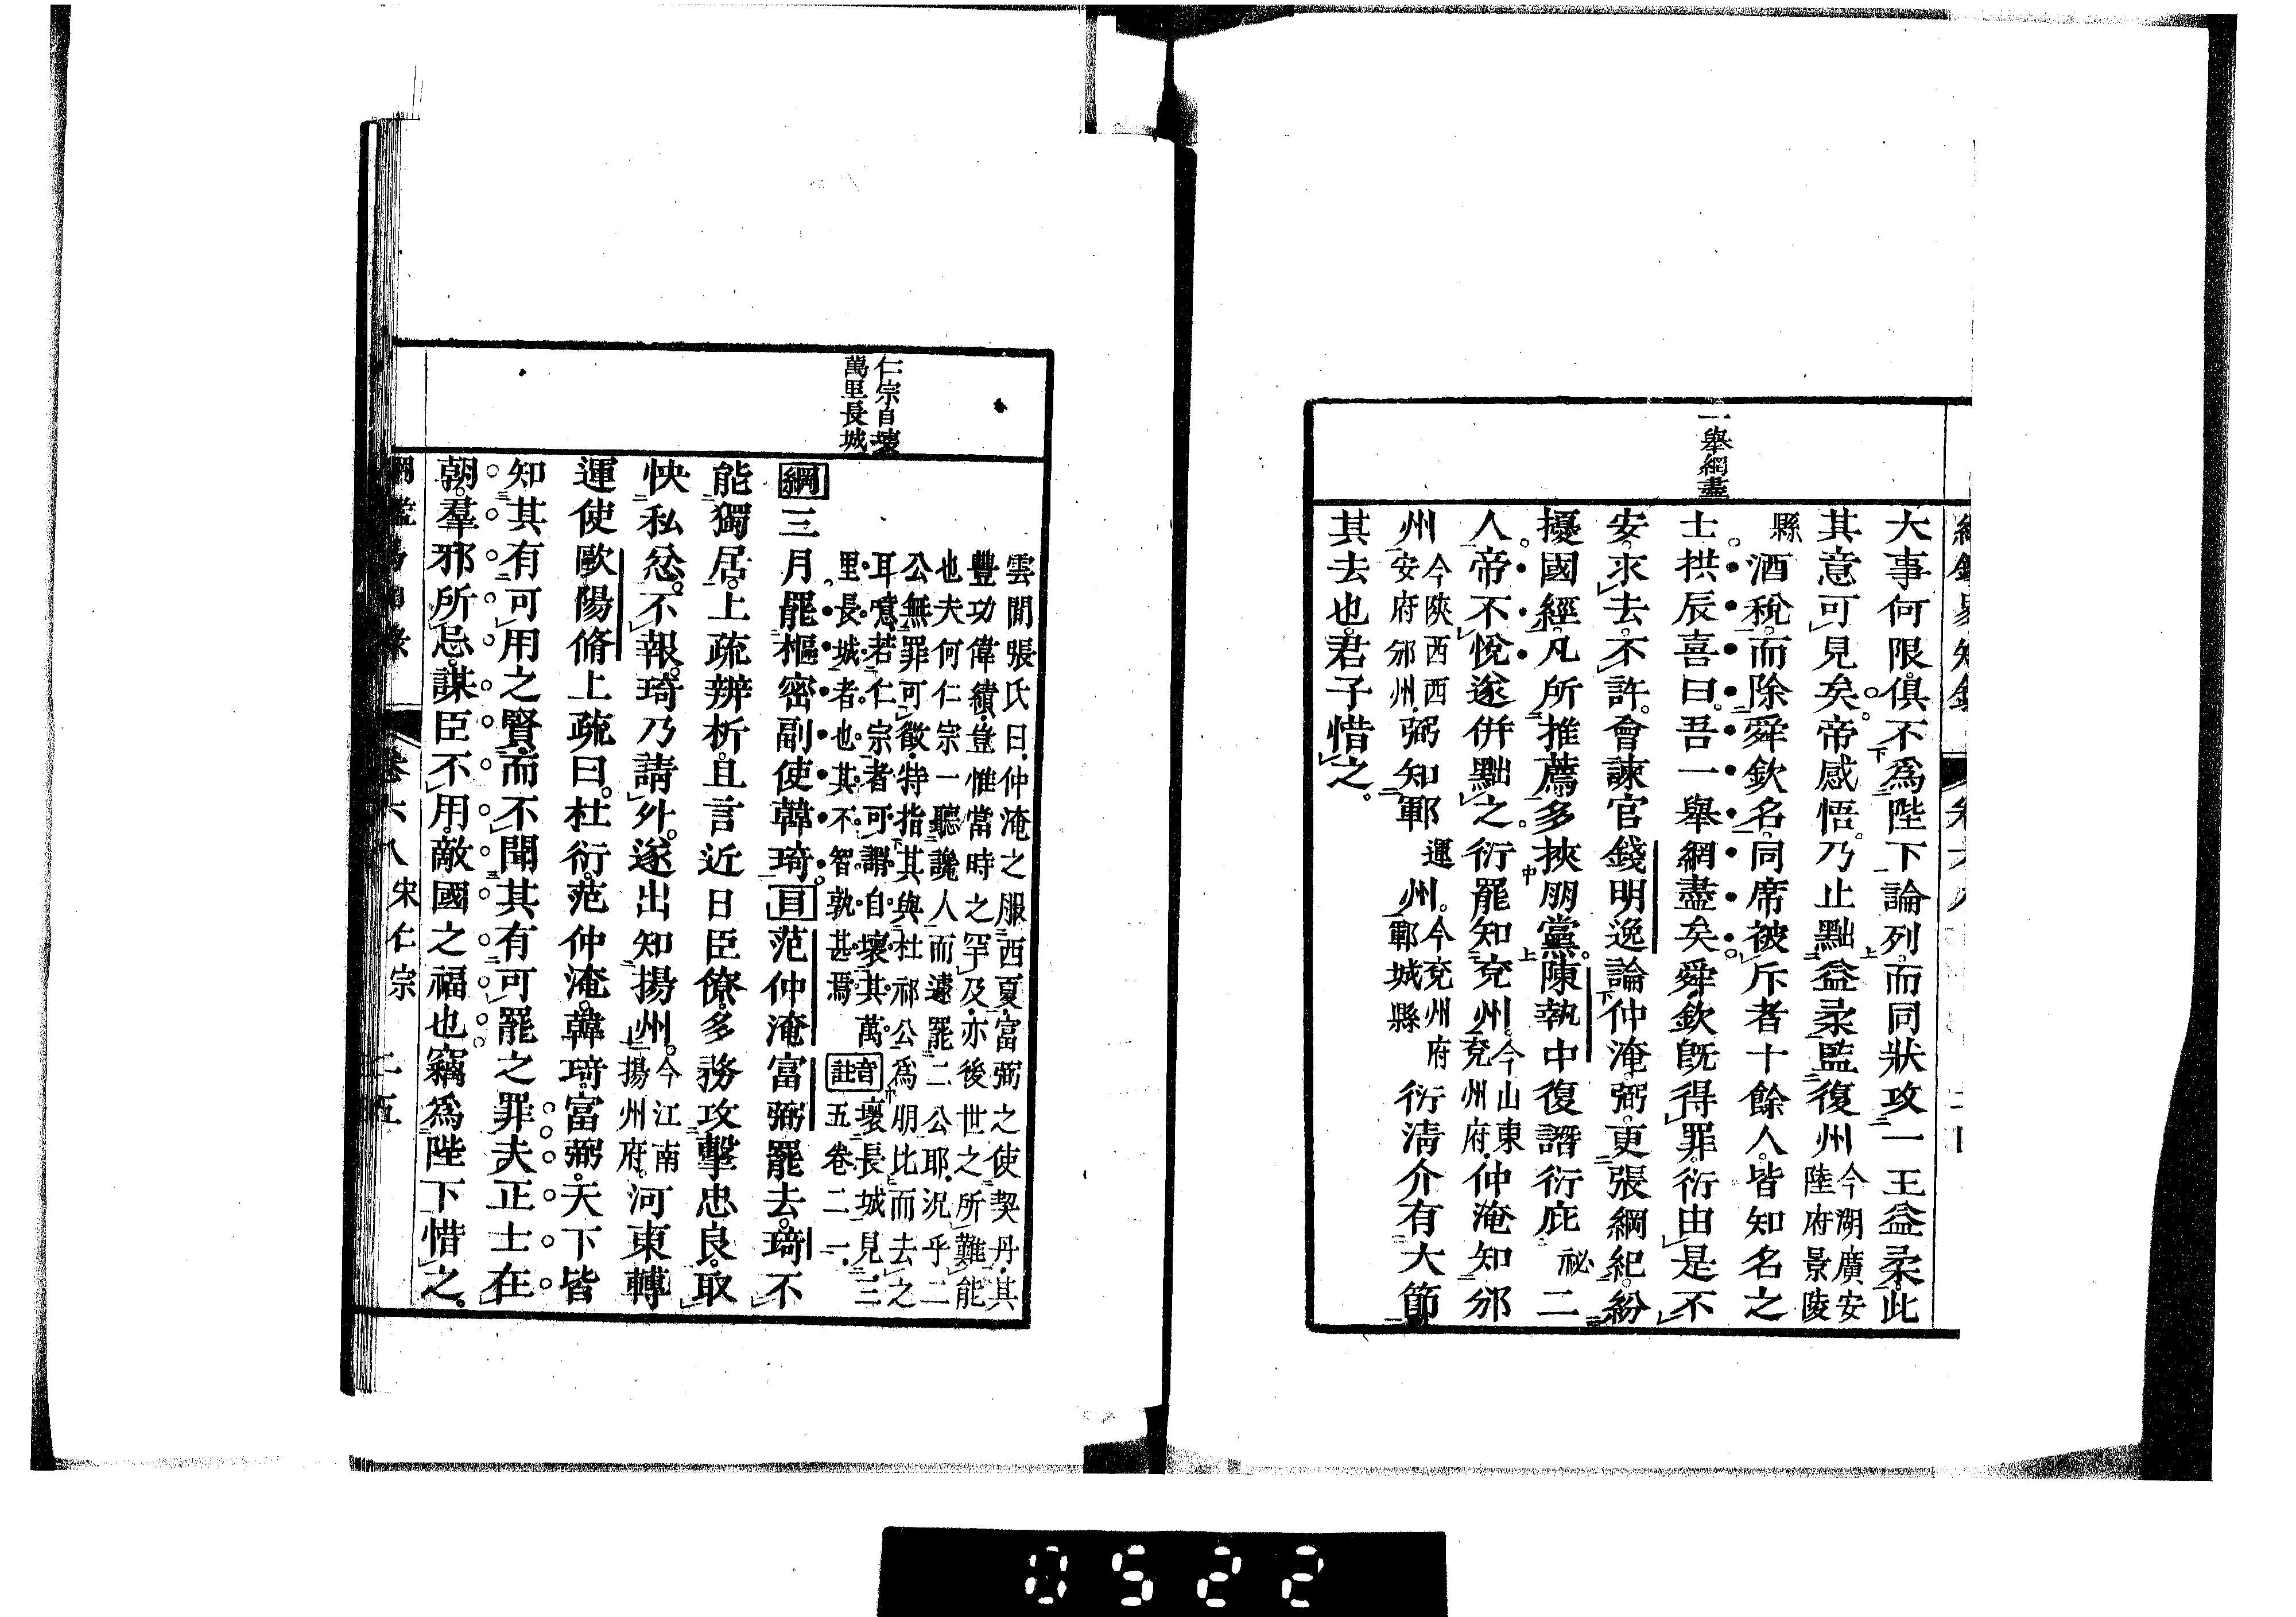 一舉網盡
大事何限俱不爲陛下論列而同狀攻一王益柔此
其意可見矣帝感悟乃止黜益柔監復州今湖廣安陸府景陵
縣酒稅而除舜欽名同席被斥者十餘人皆知名之
士拱辰喜曰吾一舉網盡矣舜欽旣得罪衍由是不
安求去不許會諫官錢明逸論仲淹弼更張綱紀紛
擾國經凡所推薦多挾朋黨陳執中復譖衍庇祕二
人帝不悅遂併黜之衍罷知兗州今山東兗州府仲淹知邠
州今陝西西安府邠州弼知鄆運州今兗州府鄆城縣衍淸介有大節
其去也君子惜之
仁宗自壞
萬里長城
雲間張氏曰仲淹之服西夏富弼之使契丹其
豐功偉績豈惟當時之罕及亦後世之所難能
也夫何仁宗一聽讒人而遽罷二公耶況乎二
公無罪可徵特指其與杜祁公爲朋比而去之
耳噫若仁宗者可謂自壞其萬
里長城者也其不智孰甚焉
音壞長城見三
註五卷二一
綱三月罷樞密副使韓琦目范仲淹富弼罷去琦不
能獨居上疏辨析且言近日臣僚多務攻擊忠良取
快私忿不報琦乃請外遂出知揚州今江南揚州府河東轉
運使歐陽脩上疏曰杜衍范仲淹韓琦富弼天下皆
知其有可用之賢而不聞其有可罷之罪夫正士在
朝羣邪所忌謀臣不用敵國之福也竊爲陛下惜之
卷六八 宋仁宗 二五
0522